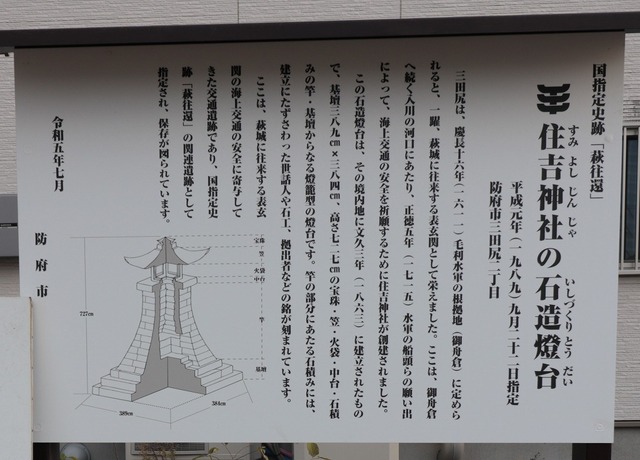 国指定史跡「萩往還」
住吉神社の石造燈台
すみよしじんじゃ いしづくりとうだい
平成元年(一九八九)九月二十二日指定
防府市三田尻二丁目
三田尻は、慶長十六年(一六一一)毛利水軍の根拠地(御舟倉)に定めら
れると、一躍、萩城に往来する表玄関として栄えました。ここは、御舟倉
へ続く入川の河口にあたり、正徳五年(一七一五)水軍の船頭らの願い出
によって、海上交通の安全を祈願するために住吉神社が創建されました。
この石造燈台は、その境内地に文久三年(一八六三)に建立されたもの
で、基壇三八九㎝×三八四㎝、高さ七二七㎝の宝珠・笠・火袋・中台・石積
みの竿・基壇からなる燈籠型の燈台です。竿の部分にあたる石積みには、
建立にたずさわった世話人や石工、拠出者などの銘が刻まれています。
ここは、萩城に往来する表玄
関の海上交通の安全に寄与して
きた交通遺跡であり、国指定史
跡「萩往還」の関連遺跡として
指定され、保存が図られています。
令和五年七月
防府市
宝珠
笠
火袋
中台
竿
基壇
727cm
389cm
384cm